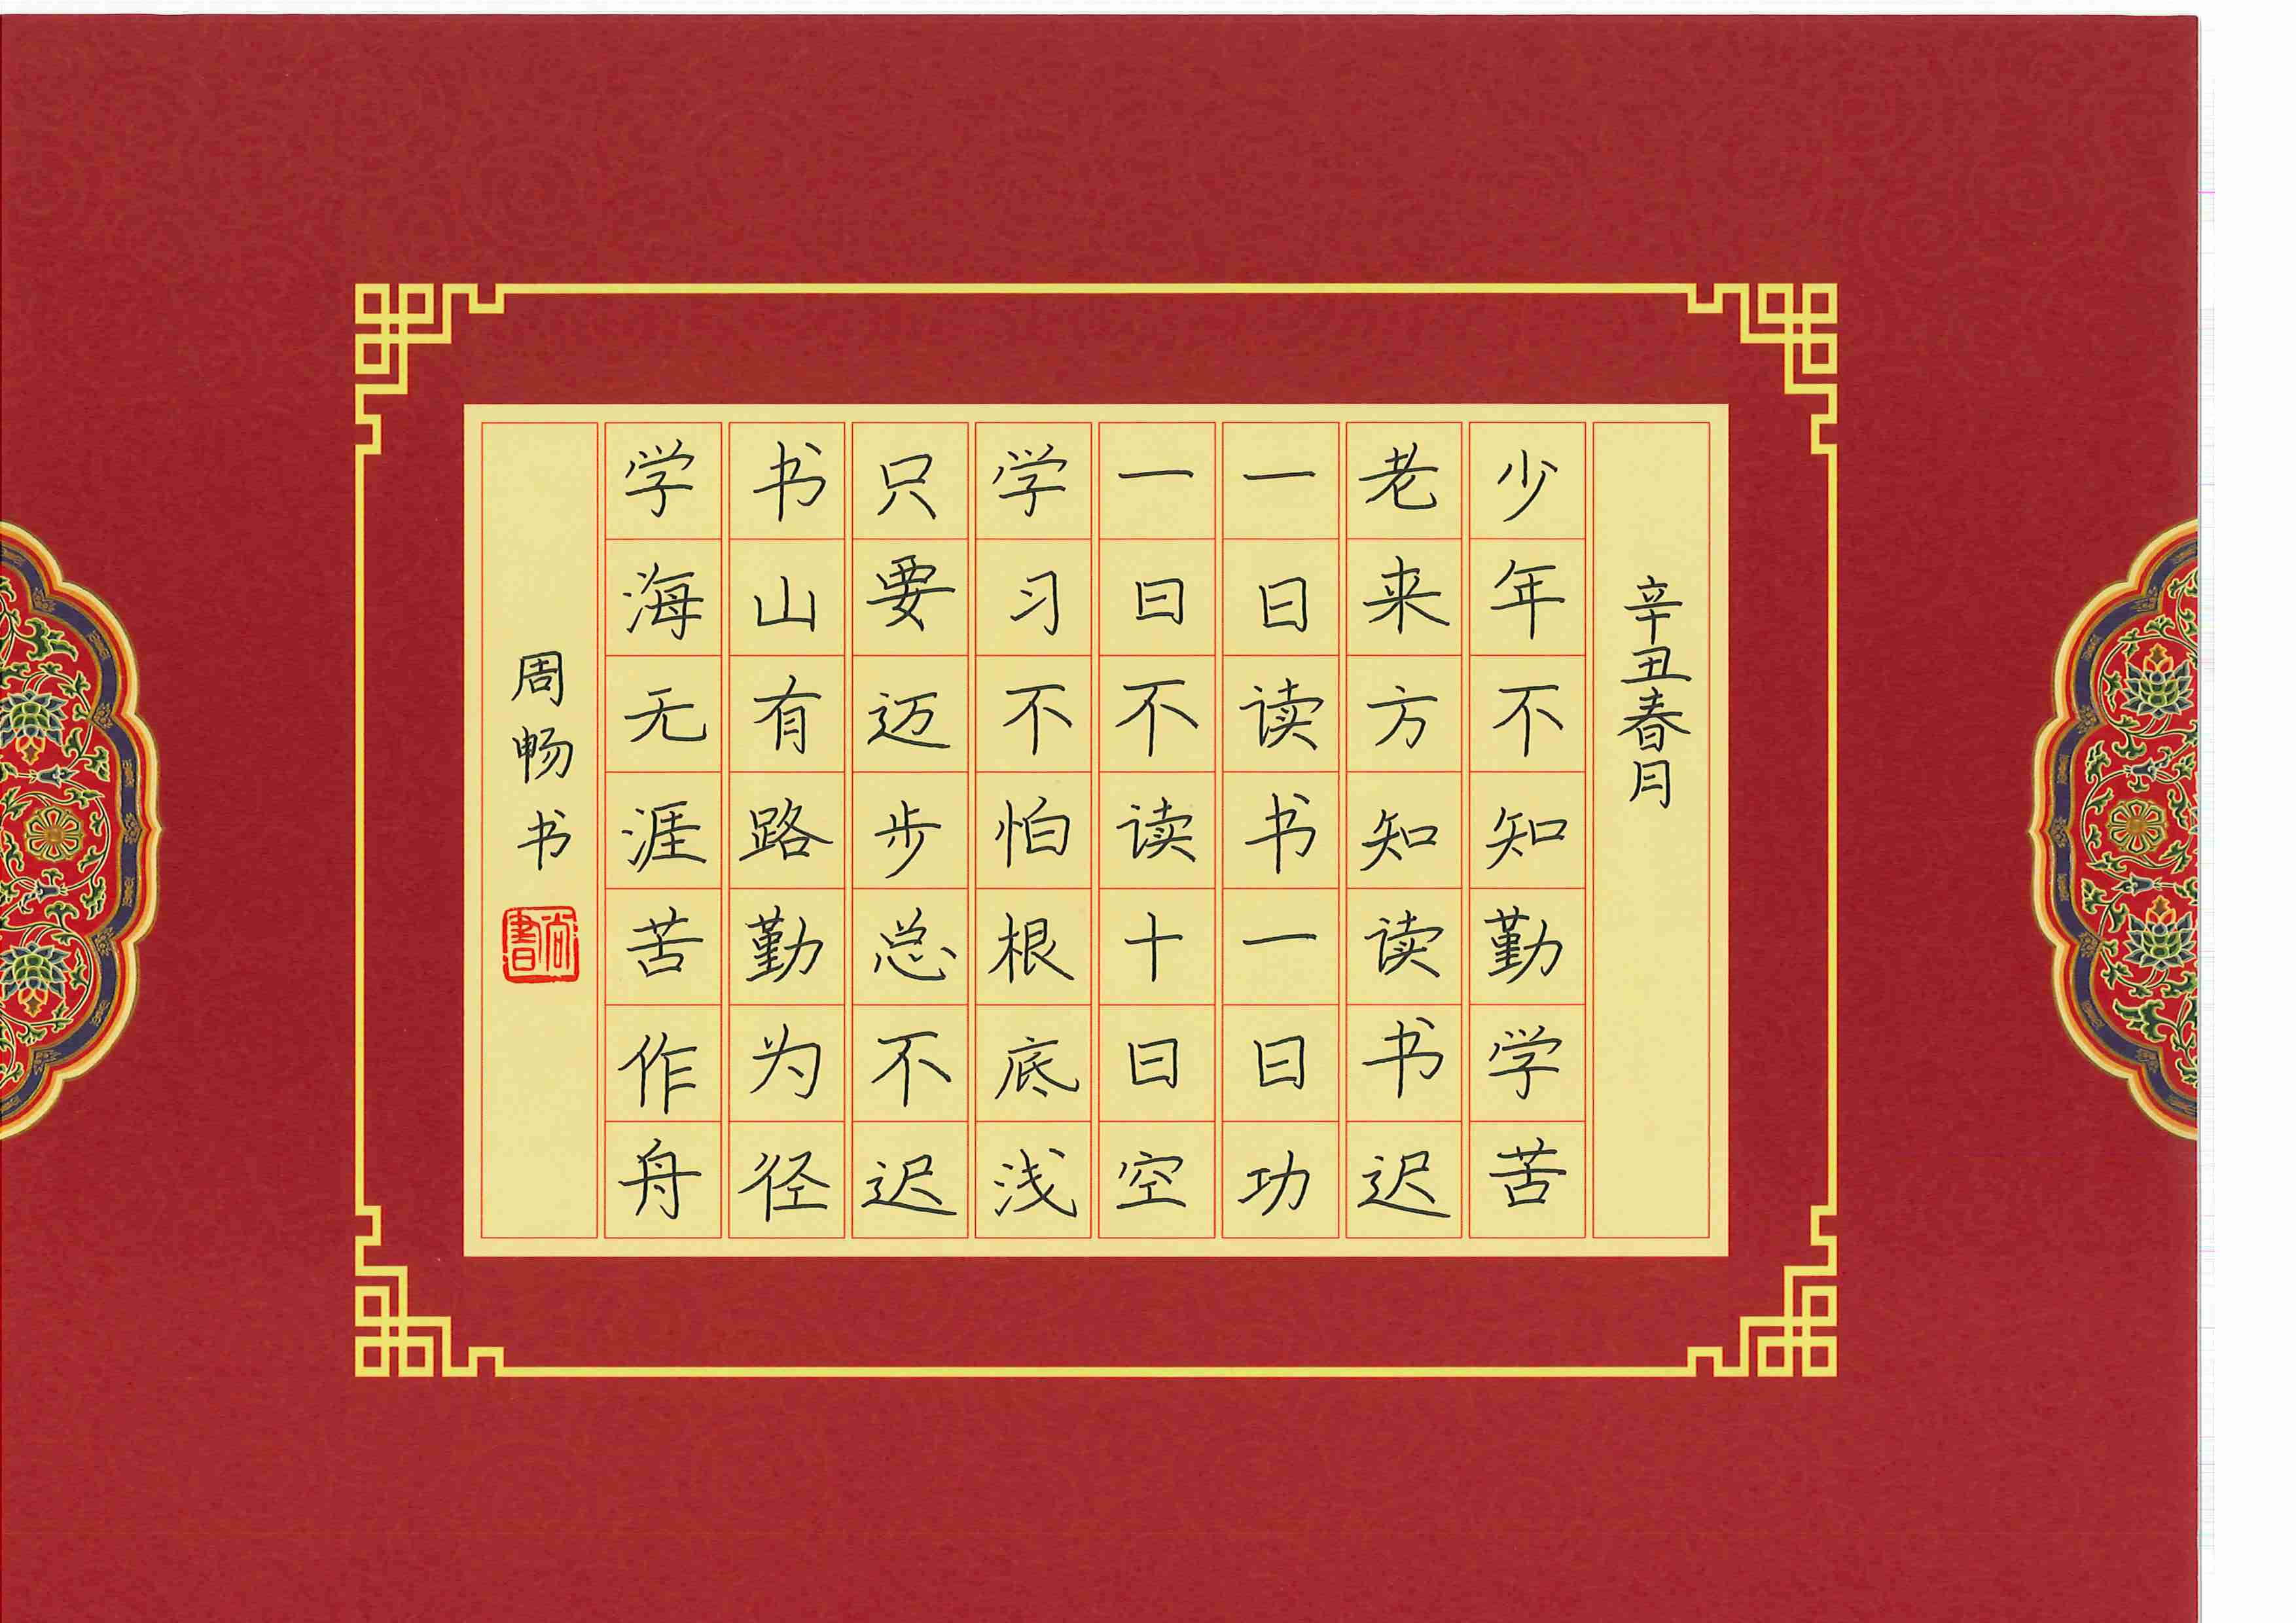 辛丑春月
少年不知勤学苦
老来方知读书迟
一日读书一日功
一日不读十日空
学习不怕根底浅
只要迈步总不迟
书山有路勤为径
学海无涯苦作舟
周畅书